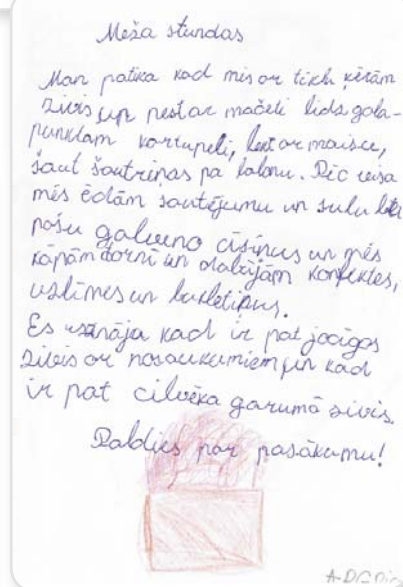 Meža stundas
Man patika kad mēs ar tīklu ķērām
zivis un nest ar mačeti līdz gala-
punktam kartupeli, lēkt ar maisu,
šaut šautriņas pa balonu. Pēc visa
mēs ēdām sautējumu un sulu
pašu galveno cīsiņus un mēs
kāpām tornī un dabūjām konfektes,
uzlīmes un bukletiņus.
Es uzināja kad ir pat jocīgas
zivis ar nosaukumiem un kad
ir pat cilvēka garumā zivis.
Paldies par pasākumu!